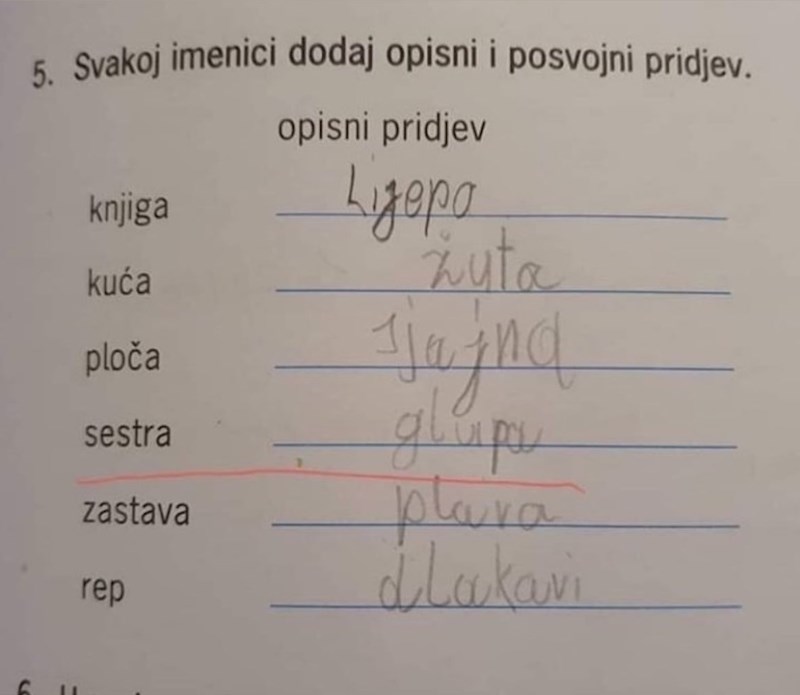 5. Svakoj imenici dodaj opisni i posvojni pridjev.
opisni pridjev
knjiga Lijepa
kuća žuta
ploča sjajna
sestra glupa
zastava plava
rep dlakavi
6.